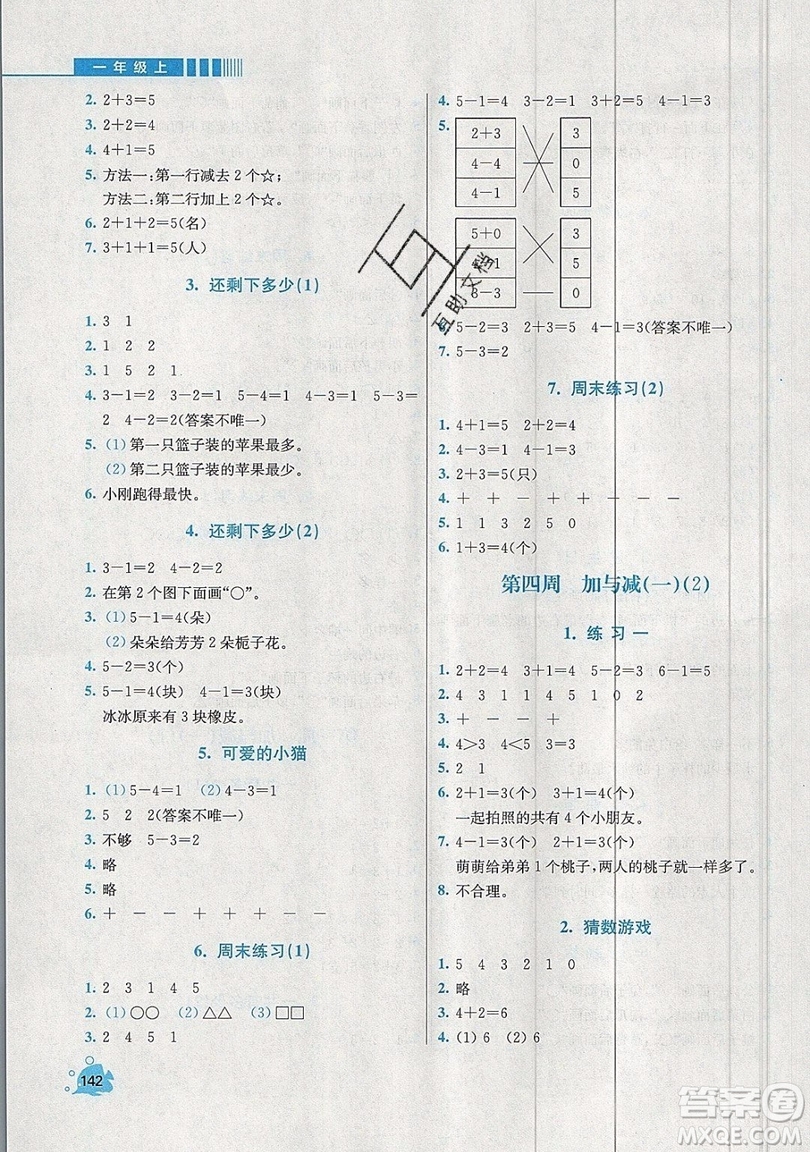 一年级上
2. 2+3=5
3. 2+2=4
4. 4+1=5
5. 方法一:第一行减去 2 个☆;
方法二:第二行加上 2 个☆。
6. 2+1+2=5(名)
7. 3+1+1=5(人)
3. 还剩下多少(1)
1. 3 1
2. 1 2 2
3. 1 5 2 1
4. 3-1=2 3-2=1 5-4=1 5-3=
2 4-2=2(答案不唯一)
5. (1) 第一只篮子装的苹果最多。
(2) 第二只篮子装的苹果最少。
6. 小刚跑得最快。
4. 还剩下多少(2)
1. 3-1=2 4-2=2
2. 在第 2 个图下面画“○”。
3. (1) 5-1=4(朵)
(2) 朵朵给芳芳 2 朵栀子花。
4. 5-2=3(个)
5. 5-1=4(块) 4-1=3(块)
冰冰原来有 3 块橡皮。
5. 可爱的小猫
1. (1) 5-4=1 (2) 4-3=1
2. 5 2 2(答案不唯一)
3. 不够 5-3=2
4. 略
5. 略
6. + - - + + + - -
6. 周末练习(1)
1. 2 3 1 4 5
2. (1)○○ (2)△△ (3)□□
3. 2 4 5 1
142
4. 5-1=4 3-2=1 3+2=5 4-1=3
5. 2+3 3
4-4 0
4-1 5
5+0 3
1 5
3-3 0
5-2=3 2+2=4 4-1=3(答案不唯一)
7. 5-3=2
7. 周末练习(2)
1. 4+1=5 5-2=3
2. 4-1=3 3+1=4
3. 2+3=5(只)
4. + + - + - + - -
5. 1 1 3 2 5 0
6. 1+3=4(个)
第四周 加与减(一)(2)
1. 练习一
1. 2+2=4 3+1=4 5-2=3 6-1=5
2. 4 3 1 1 4 5 1 0 2
3. + - - +
4. 4>3 4<5 3=3
5. 2 1
6. 2+1=3(个) 3+1=4(个)
一起拍照的共有 4 个小朋友。
7. 4-1=3(个) 2+1=3(个)
萌萌给弟弟 1 个桃子,两人的桃子就一样多了。
8. 不合理。
2. 猜数游戏
1. 5 4 3 2 1 0
2. 略
3. 4+2=6
4. (1) 6 (2) 6
互助文档
答案圈
MXQE.COM